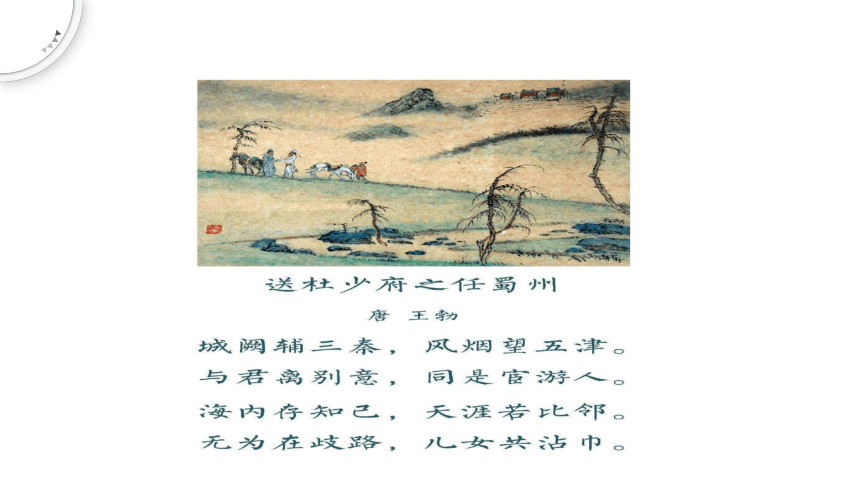 送杜少府之任蜀州
唐 王勃
城阙辅三秦，风烟望五津。
与君离别意，同是宦游人。
海内存知己，天涯若比邻。
无为在歧路，儿女共沾巾。